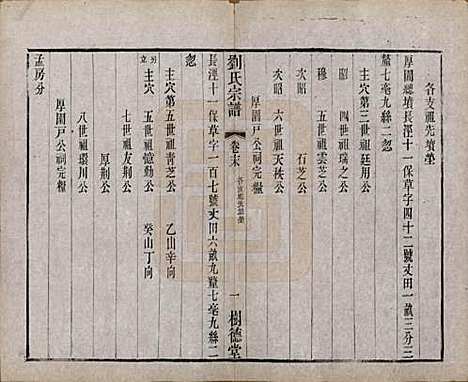 各支祖先墳塋
厚園總墳長涇十一保草字四十二號丈田一畝三分三
釐七毫九絲二忽
主穴第三世祖廷用公
昭 四世祖瑞之公
穆 五世祖雲芝公
次昭 石芝公
次昭 六世祖天秩公
厚園戶公祠完糧
劉氏宗譜
卷末
各支祖先墳塋
一
樹德堂
長涇十一保草字一百七號丈田六畝九釐七毫九絲二
忽
主穴第五世祖青芝公 乙山辛向
另立
主穴 五世祖憶勤公 癸山丁向
七世祖友荆公
厚荆公
八世祖環川公
厚園戶公祠完糧
孟房分